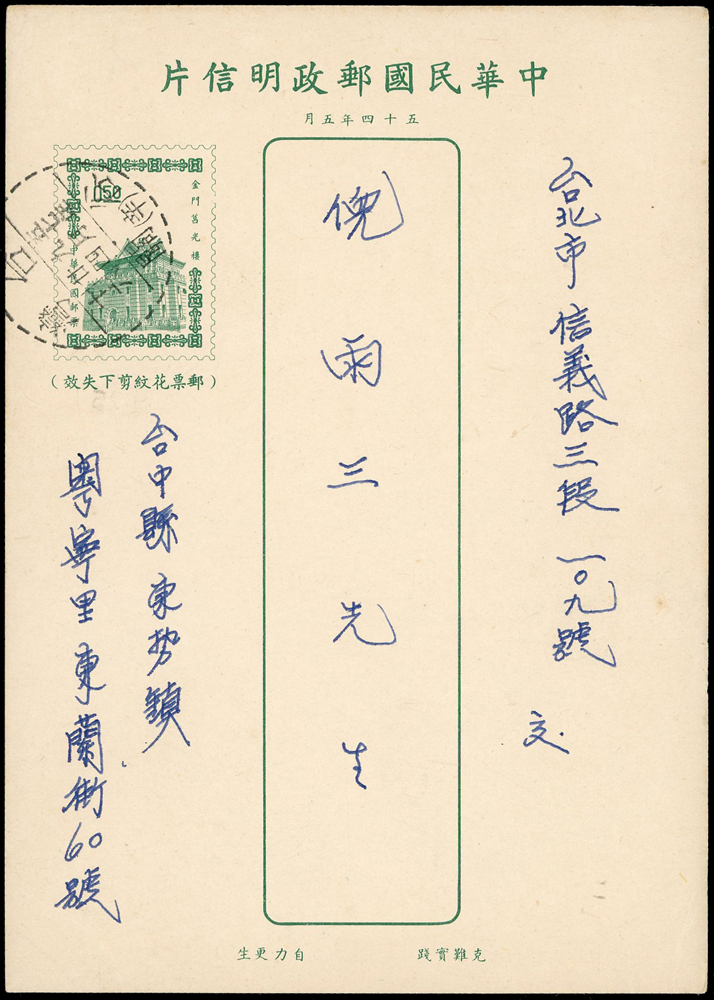 中華民國郵政明信片
五十四年五月
台北市信義路三段一〇九號 交
倪雨三先生
0.50
金門莒光樓
中華民國郵票
(郵票花紋剪下失效)
台中縣東势鎮
粵寧里東蘭街60號
克難實踐
自力更生